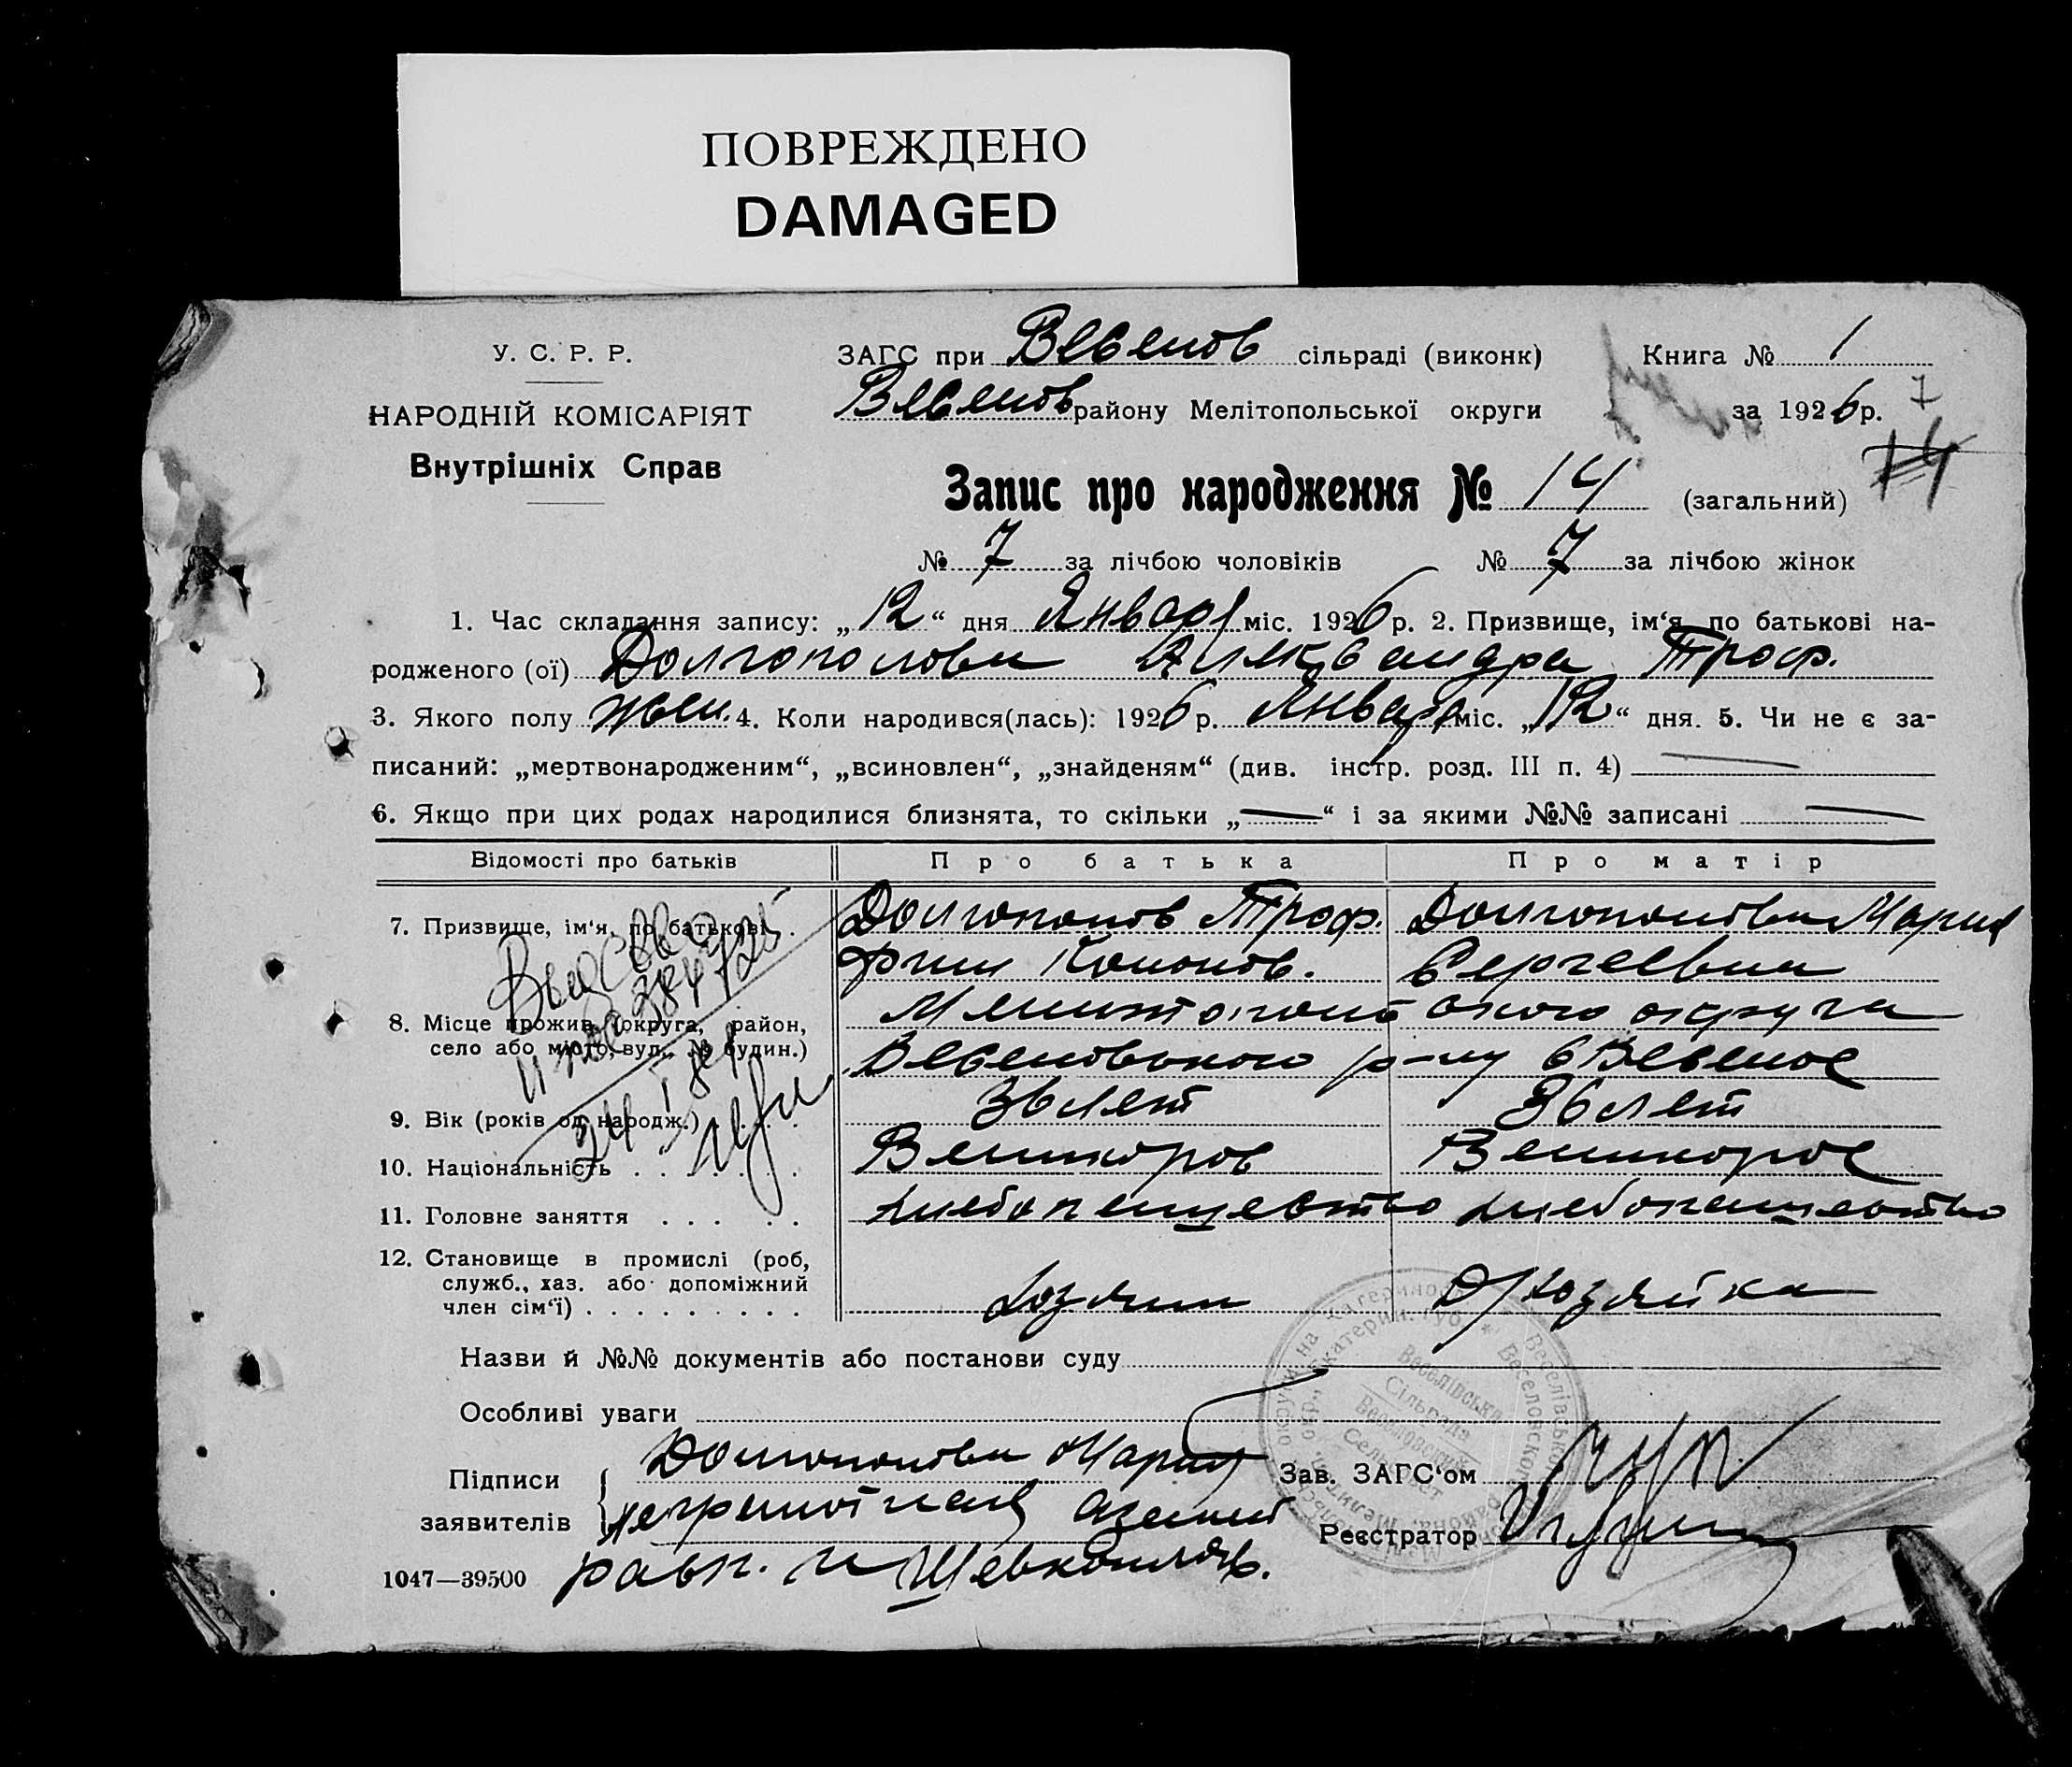 ПОВРЕЖДЕНО
DAMAGED
У. С. Р. Р.
НАРОДНІЙ КОМІСАРІЯТ
Внутрішніх Справ
ЗАГС при Веселов сільраді (виконк) Книга № 1
Веселов району Мелітопольської округи за 1926 р. 7
14
Запис про народження № 14 (загальний)
№ 7 за лічбою чоловіків № 7 за лічбою жінок
1. Час складання запису: „12“ дня Января міс. 1926 р. 2. Призвище, ім‘я, по батькові на-
родженого (ої) Долгополова Александра Троф.
3. Якого полу жен. 4. Коли народився(лась): 1926 р. Января міс. „12“ дня. 5. Чи не є за-
писаний: „мертвонародженим“, „всиновлен“, „знайденям“ (див. інстр. розд. III п. 4) —
6. Якщо при цих родах народилися близнята, то скільки „—“ і за якими №№ записані —
Відомості про батьків Про батька Про матір
7. Призвище, ім‘я, по батькові . Долгополов Троф. Долгополова Мария
фим Кононов. Сергеевна
8. Місце прожив. (округа, район, Мелитопольского округа
село або місто, вул., № будин.) Веселовського р-ну с Веселое
9. Вік (років од народж.) . . . 36 лет 36 лет
10. Національність . . . . . . Великорос Великорос
11. Головне заняття . . . . . хлебопашество хлебопашество
12. Становище в промислі (роб, служб., хаз. або допоміжний член сім‘ї) . . . . . . . . . хозяин Д/хозяйка
Назви й №№ документів або постанови суду
Особливі уваги
Підписи заявителів Долгополова Мария
неграмотная
расп. и Шевкопляс.
Зав. ЗАГС‘ом
Реєстратор
1047—39500
Веселівська
Сільрада
Веселовский
Сельсовет